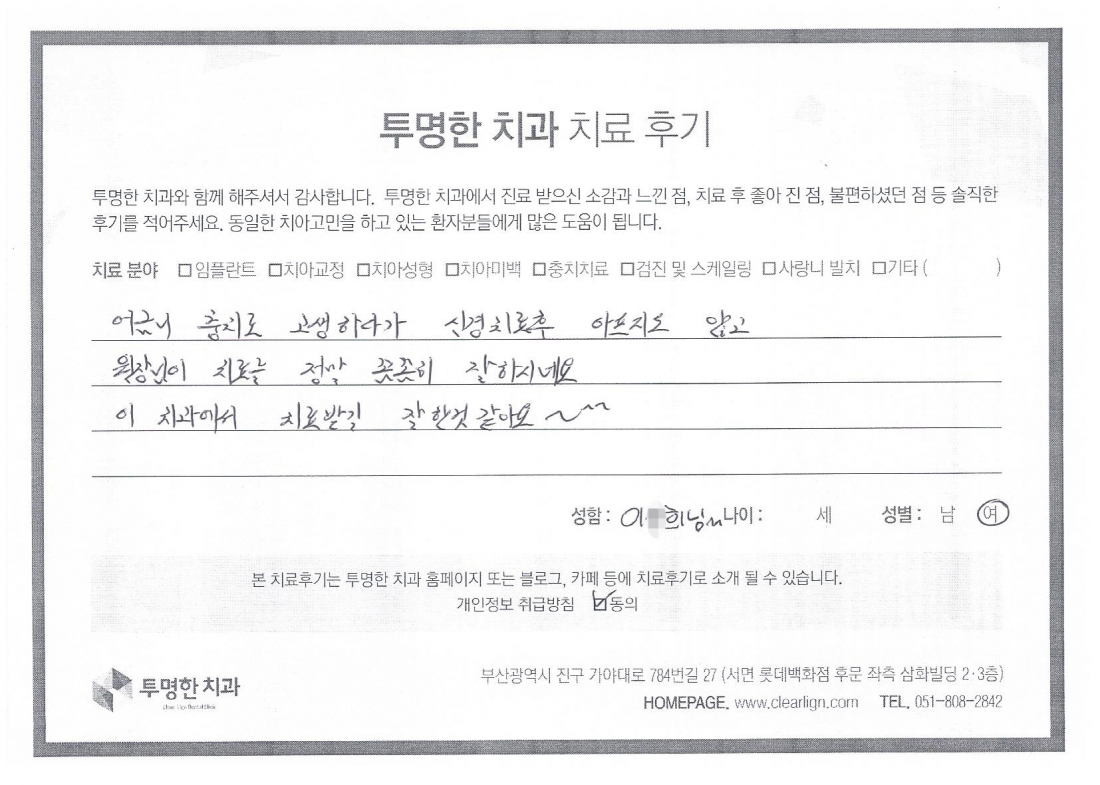 투명한 치과 치료 후기
투명한 치과와 함께 해주셔서 감사합니다. 투명한 치과에서 진료 받으신 소감과 느낀 점, 치료 후 좋아 진 점, 불편하셨던 점 등 솔직한
후기를 적어주세요. 동일한 치아고민을 하고 있는 환자분들에게 많은 도움이 됩니다.
치료 분야 □임플란트 □치아교정 □치아성형 □치아미백 □충치치료 □검진 및 스케일링 □사랑니 발치 □기타 ( )
어금니 충치로 고생하다가 신경치료후 아프지도 않고
원장님이 치료를 정말 꼿꼿히 잘하시네요
이 치과에서 치료받길 잘한것 같아요 ~^^
성함 : 이 희님~ 나이 : 세 성별 : 남 여
본 치료후기는 투명한 치과 홈페이지 또는 블로그, 카페 등에 치료후기로 소개 될 수 있습니다.
개인정보 취급방침 ☑동의
투명한 치과
부산광역시 진구 가야대로 784번길 27 (서면 롯데백화점 후문 좌측 삼화빌딩 2·3층)
HOMEPAGE. www.clearlign.com TEL. 051-808-2842